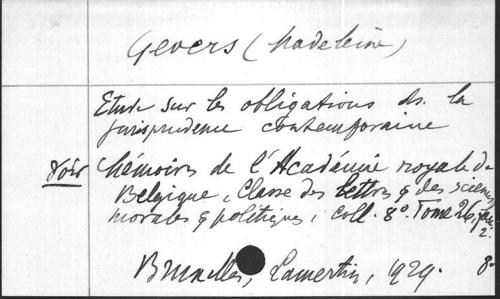 Gevers (Madeleine)
Etude sur les obligations ds. la
jurisprudence contemporaine
Voir Mémoires de l'Académie royale de
Belgique, Classe des lettres & des sciences
morales & politiques, coll. 8º. Tome 26, fasc.
2.
Bruxelles, Lamertin, 1929. 8º